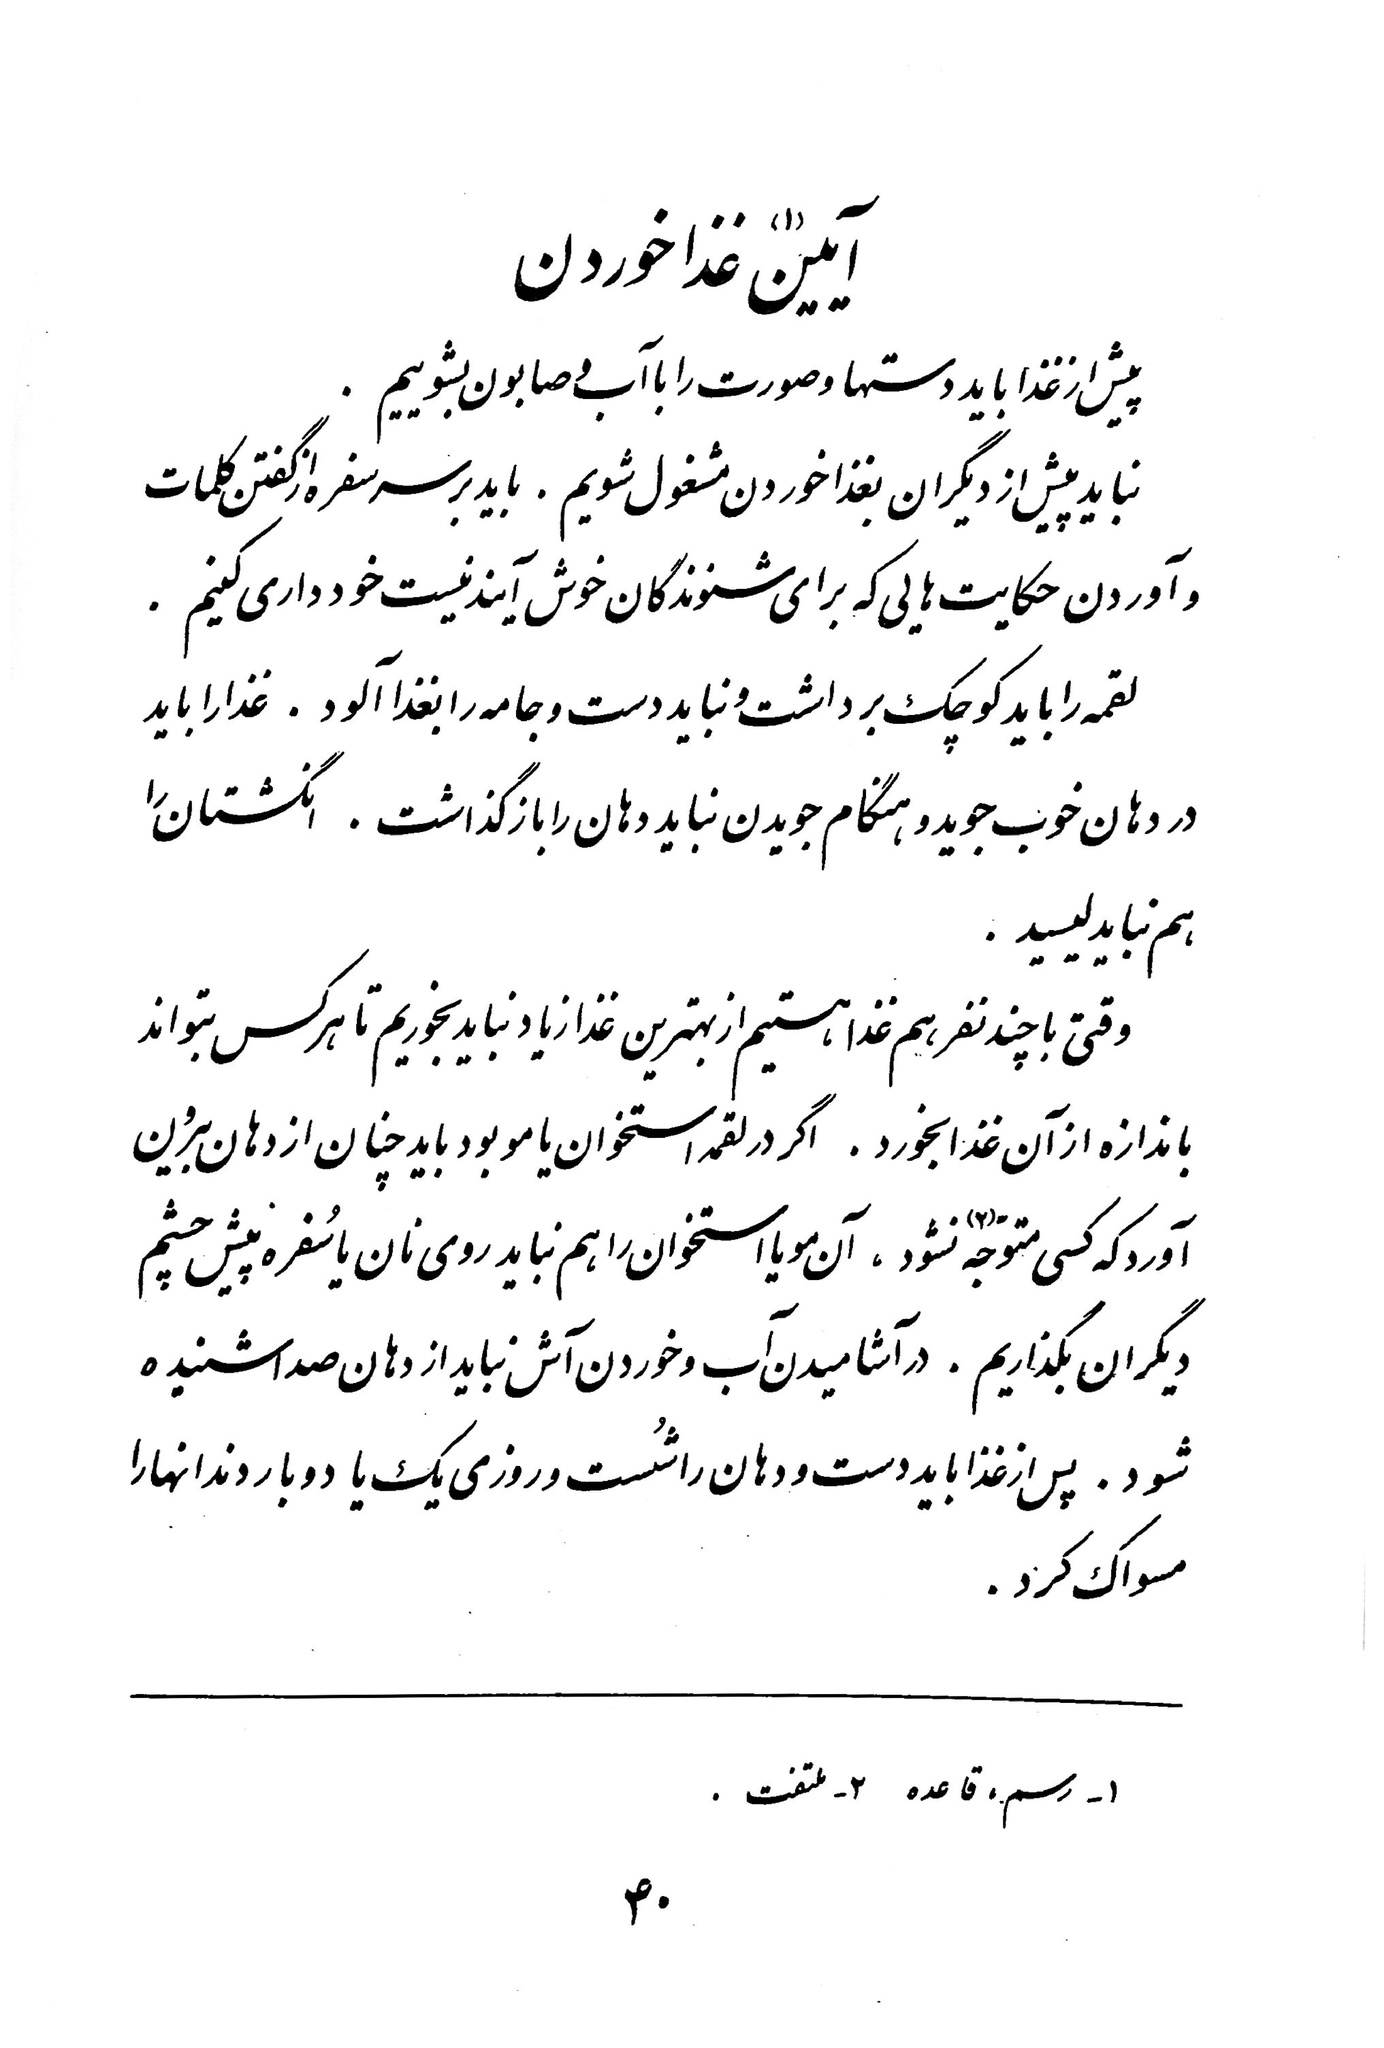 آیین(۱) غذا خوردن
پیش از غذا باید دستها و صورت را با آب و صابون بشوییم .
نباید پیش از دیگران بغذا خوردن مشغول شویم . باید بر سر سفره از گفتن کلمات
و آوردن حکایت هایی که برای شنوندگان خوش آیند نیست خود داری کنیم .
لقمه را باید کوچک برداشت و نباید دست و جامه را بغذا آلود . غذا را باید
در دهان خوب جوید و هنگام جویدن نباید دهان را باز گذاشت . انگشتان را
هم نباید لیسید .
وقتی با چند نفر هم غذا هستیم از بهترین غذا زیاد نباید بخوریم تا هر کس بتواند
باندازه از آن غذا بخورد . اگر در لقمه استخوان یا مو بود باید چنان از دهان برون
آورد که کسی متوّجه(۲) نشود ، آن مو یا استخوان را هم نباید روی نان یا سُفره پیش چشم
دیگران بگذاریم . در آشامیدن آب و خوردن آش نباید از دهان صدا شنیده
شود . پس از غذا باید دست و دهان را شُست و روزی یک یا دو بار دندانها را
مسواک کرد .
۱- رسم ، قاعده ۲- ملتفت .
۴۰